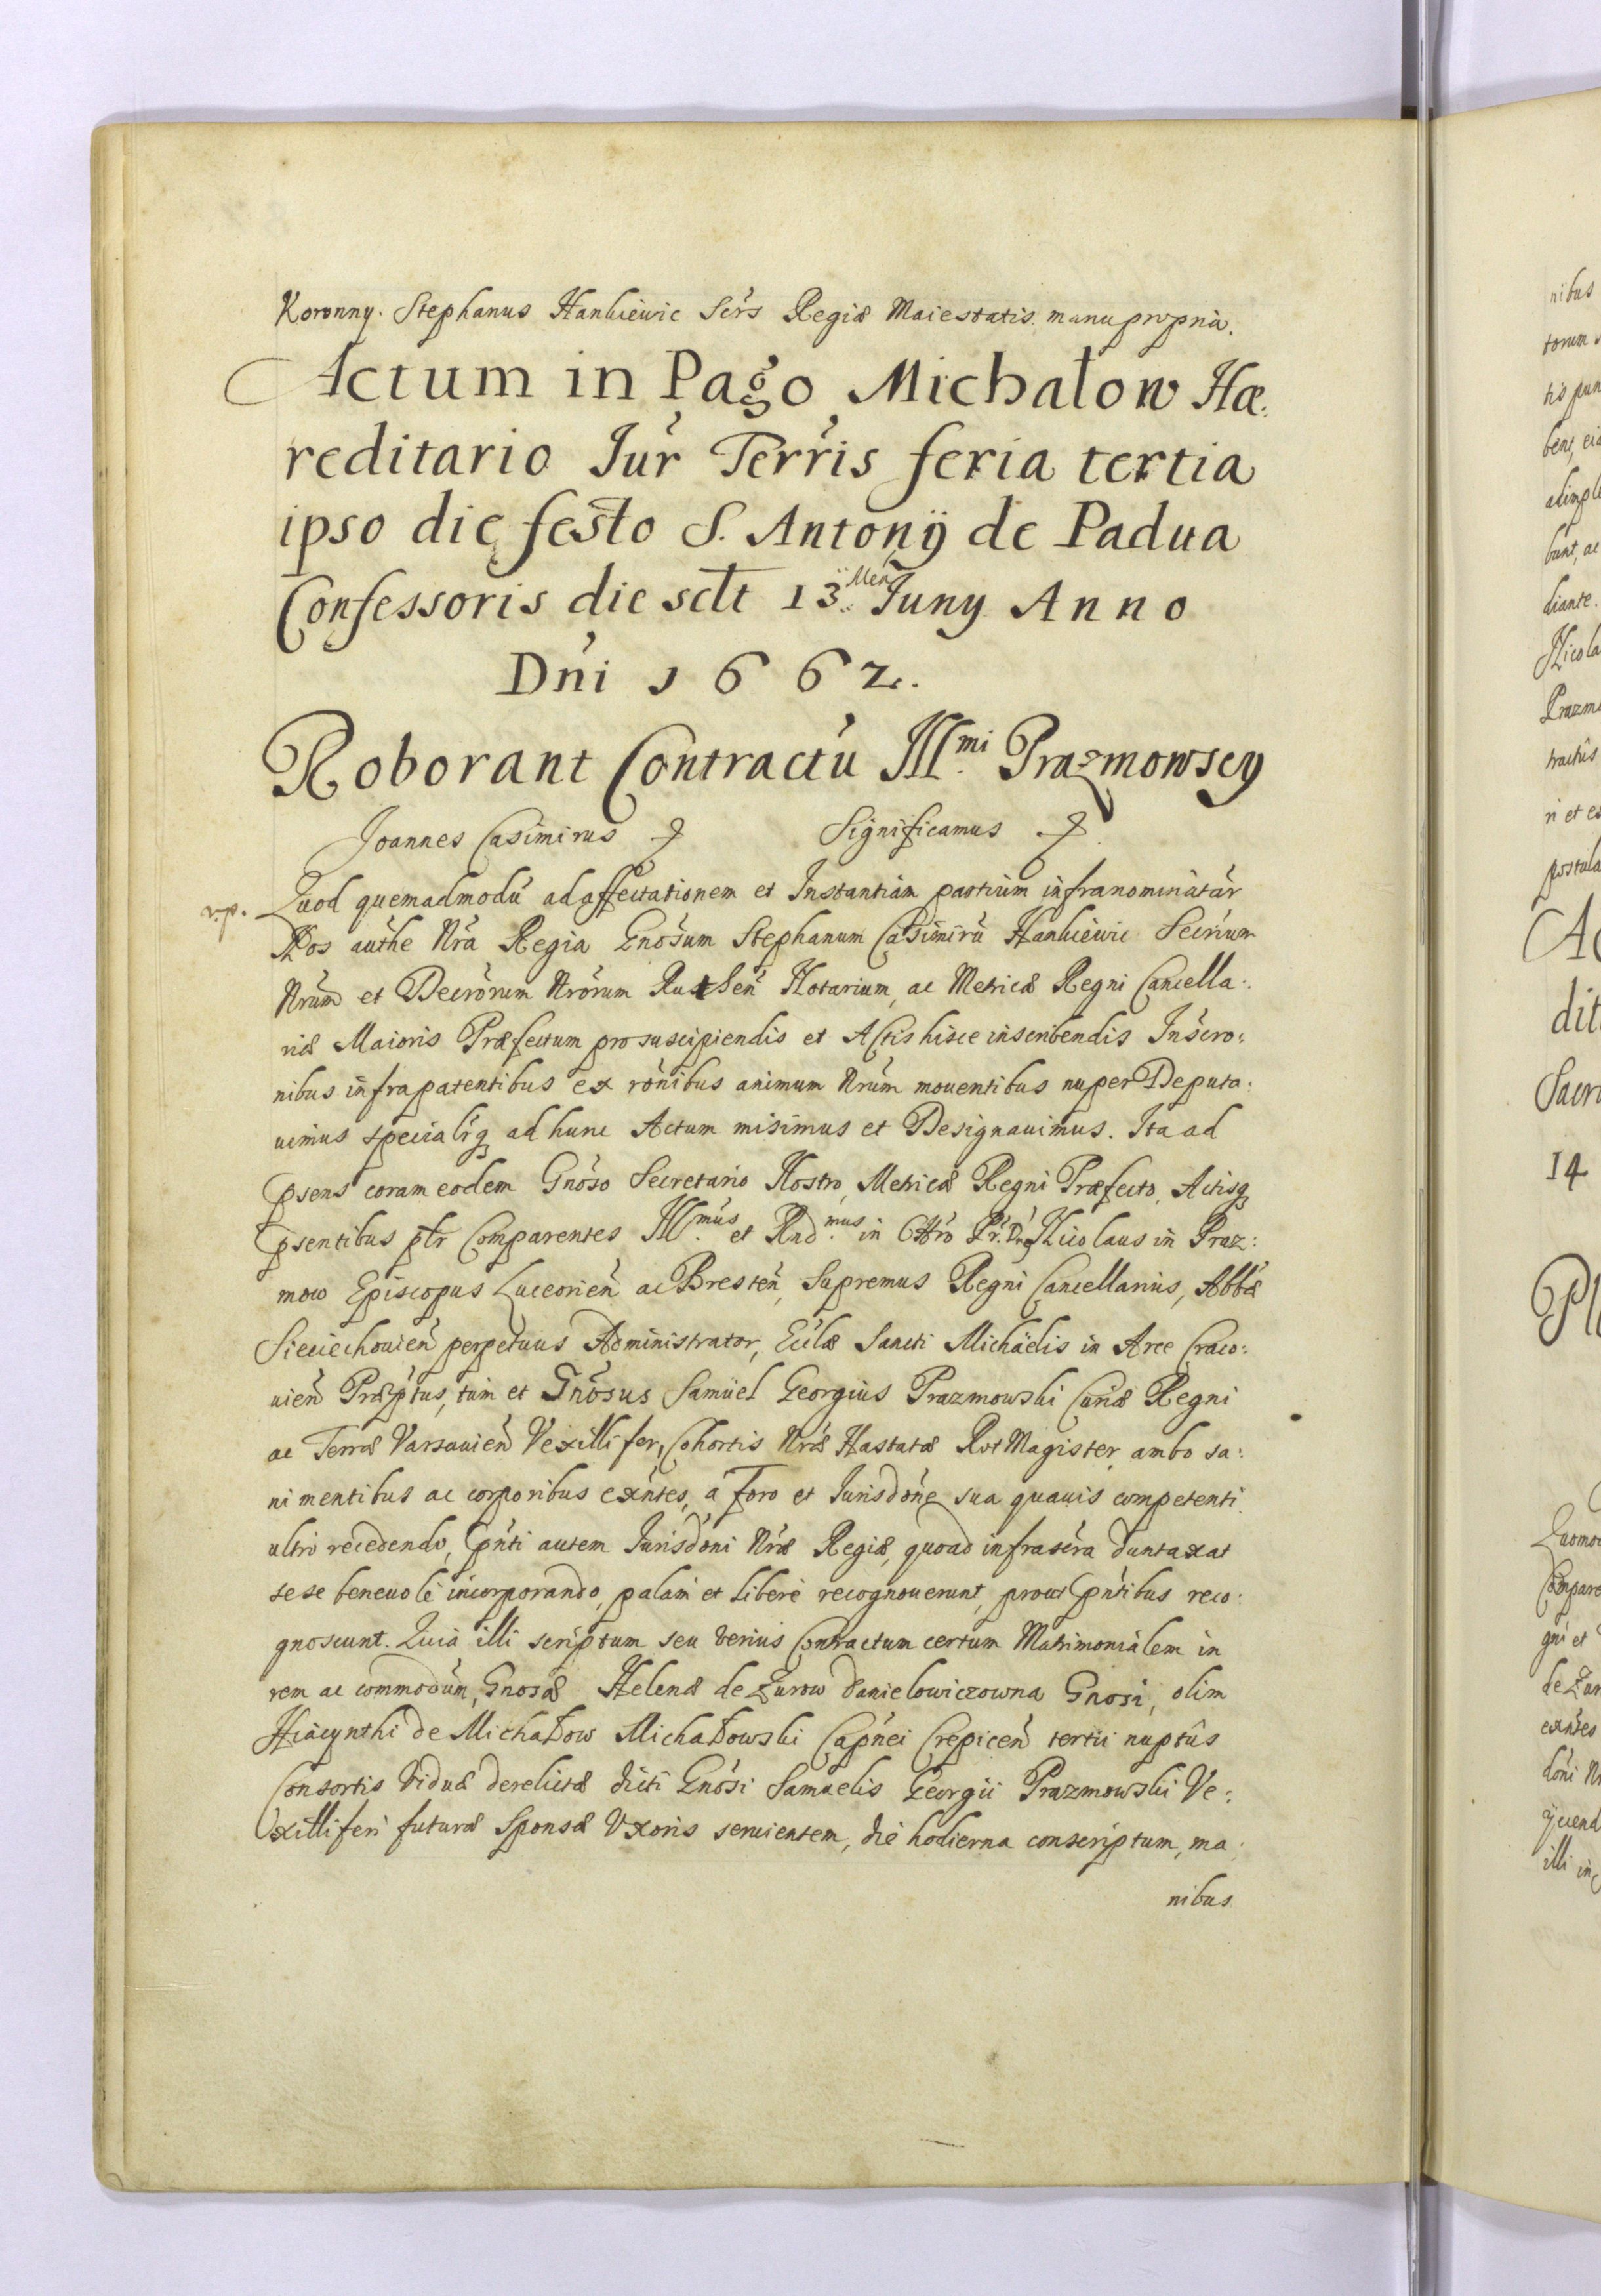 Koronny. Stephanus Hankiewic Sers Regiæ Maiestatis manu propria.
Actum in Pago Michałow Hæ:
reditario Jur Terris feria tertia
ipso die festo S. Antonÿ de Padua
Confessoris die sclt 13. Men Juny Anno
Dni 1662.
Roborant Contractu Illmi Prazmowscy
Joannes Casimirus Significamus
r.p. Quod quemadmodu ad affectationem et Instantiam partium infranominatar
Nos authe Nra Regia Gnosum Stephanum Casimiru Hankiewic Secrium
Nrum et Decrorum Nrorum Ruthen Notarium, ac Metricæ Regni Cancella:
riæ Maioris Præfectum pro suscipiendis et Actis hisce inscribendis Inscro:
nibus infrapatentibus ex ronibus animum Nrum mouentibus nuper Deputa:
uimus specialrq ad hunc Actum misimus et Designauimus. Ita ad
psens coram eodem Gnoso Secretario Nostro, Metricæ Regni Præfecto, Actisq
psentibus pltr Comparentes Illmus et Rndmus in Chro Pr. Dnq Nicolaus in Praz:
mow Episcopus Luceorien ac Bresten, Supremus Regni Cancellarius, Abbæ
Sieciechouien perpetuus Administrator, Eclæ Sancti Michaëlis in Arce Craco:
uien Præptus, tum et Gnosus Samuel Georgius Prazmowski Curiæ Regni
ac Terræ Varsauien Vexillifer, Cohortis Nræ Hastatæ Rot Magister, ambo sa:
ni mentibus ac corporibus exntes, a foro et Jurisdone sua quauis competenti
ultro recedendo, pnti autem Jurisdoni Nræ Regiæ, quoad infrascra duntaxat
sese beneuole incorporando, palam et libere recognouerunt, prout pntibus reco:
gnoscunt. Quia illi scriptum seu verius Contractum certum Matrimonialem in
rem ac commodum, Gnosæ Helenæ de Zurow Danielowiczowna Gnosi, olim
Hiacynthi de Michałow Michałowski Capnei Crepicen tertii nuptûs
Consortis Viduæ derelictæ dicti Gnosi Samuelis Georgii Prazmowski Ve:
xilliferi futuræ Sponsæ Vxoris seruientem, die hodierna conscriptum, ma:
nibus
nibus
dit
14